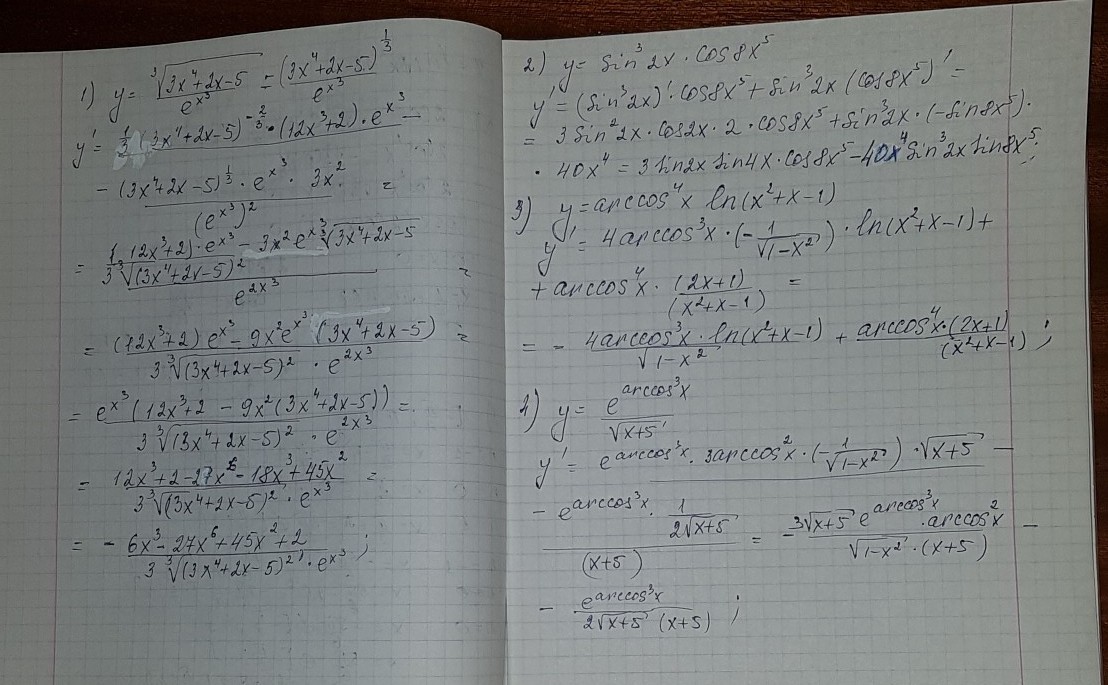 1) y = ∛(3x⁴+2x-5) / e^(x³) = (3x⁴+2x-5)^(1/3) / e^(x³)
y' = 1/3 (3x⁴+2x-5)^(-2/3) · (12x³+2) · e^(x³) -
- (3x⁴+2x-5)^(1/3) · e^(x³) · 3x² / (e^(x³))² =
= 1/3 (12x³+2) · e^(x³) / ∛(3x⁴+2x-5)² - 3x² e^(x³) ∛(3x⁴+2x-5) / e^(2x³) =
= (12x³+2) e^(x³) - 9x² e^(x³) (3x⁴+2x-5) / 3∛(3x⁴+2x-5)² · e^(2x³) =
= e^(x³) (12x³+2 - 9x²(3x⁴+2x-5)) / 3∛(3x⁴+2x-5)² · e^(2x³) =
= 12x³+2-27x⁶-18x³+45x² / 3∛(3x⁴+2x-5)² · e^(x³) =
= - 6x³-27x⁶+45x²+2 / 3∛(3x⁴+2x-5)² · e^(x³) ;
2) y = sin³2x · cos8x⁵
y' = (sin³2x)' · cos8x⁵ + sin³2x (cos8x⁵)' =
= 3sin²2x · cos2x · 2 · cos8x⁵ + sin³2x · (-sin8x⁵) ·
· 40x⁴ = 3sin2x sin4x · cos8x⁵ - 40x⁴ sin³2x sin8x⁵;
3) y = arccos⁴x ln(x²+x-1)
y' = 4arccos³x · (-1/√(1-x²)) · ln(x²+x-1) +
+ arccos⁴x · (2x+1)/(x²+x-1) =
= - 4arccos³x · ln(x²+x-1) / √(1-x²) + arccos⁴x · (2x+1) / (x²+x-1) ;
4) y = e^(arccos³x) / √(x+5)
y' = e^(arccos³x) · 3arccos²x · (-1/√(1-x²)) · √(x+5) -
- e^(arccos³x) · 1/(2√(x+5)) / (x+5) = - 3√(x+5) e^(arccos³x) · arccos²x / √(1-x²) · (x+5) -
- e^(arccos³x) / 2√(x+5) (x+5) ;